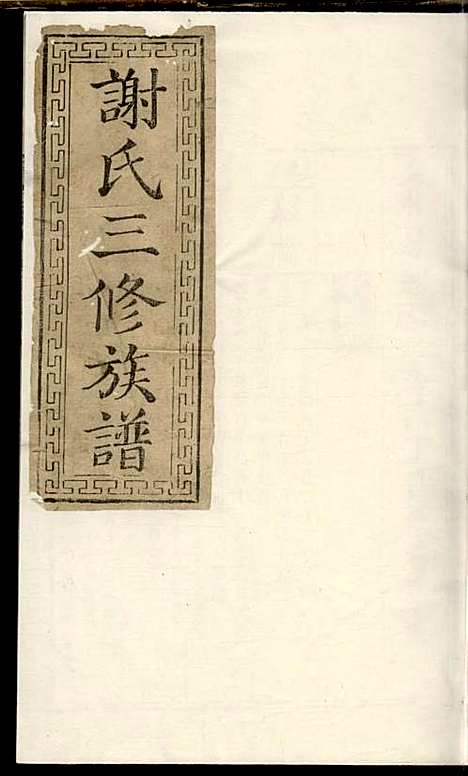 謝氏三修族譜